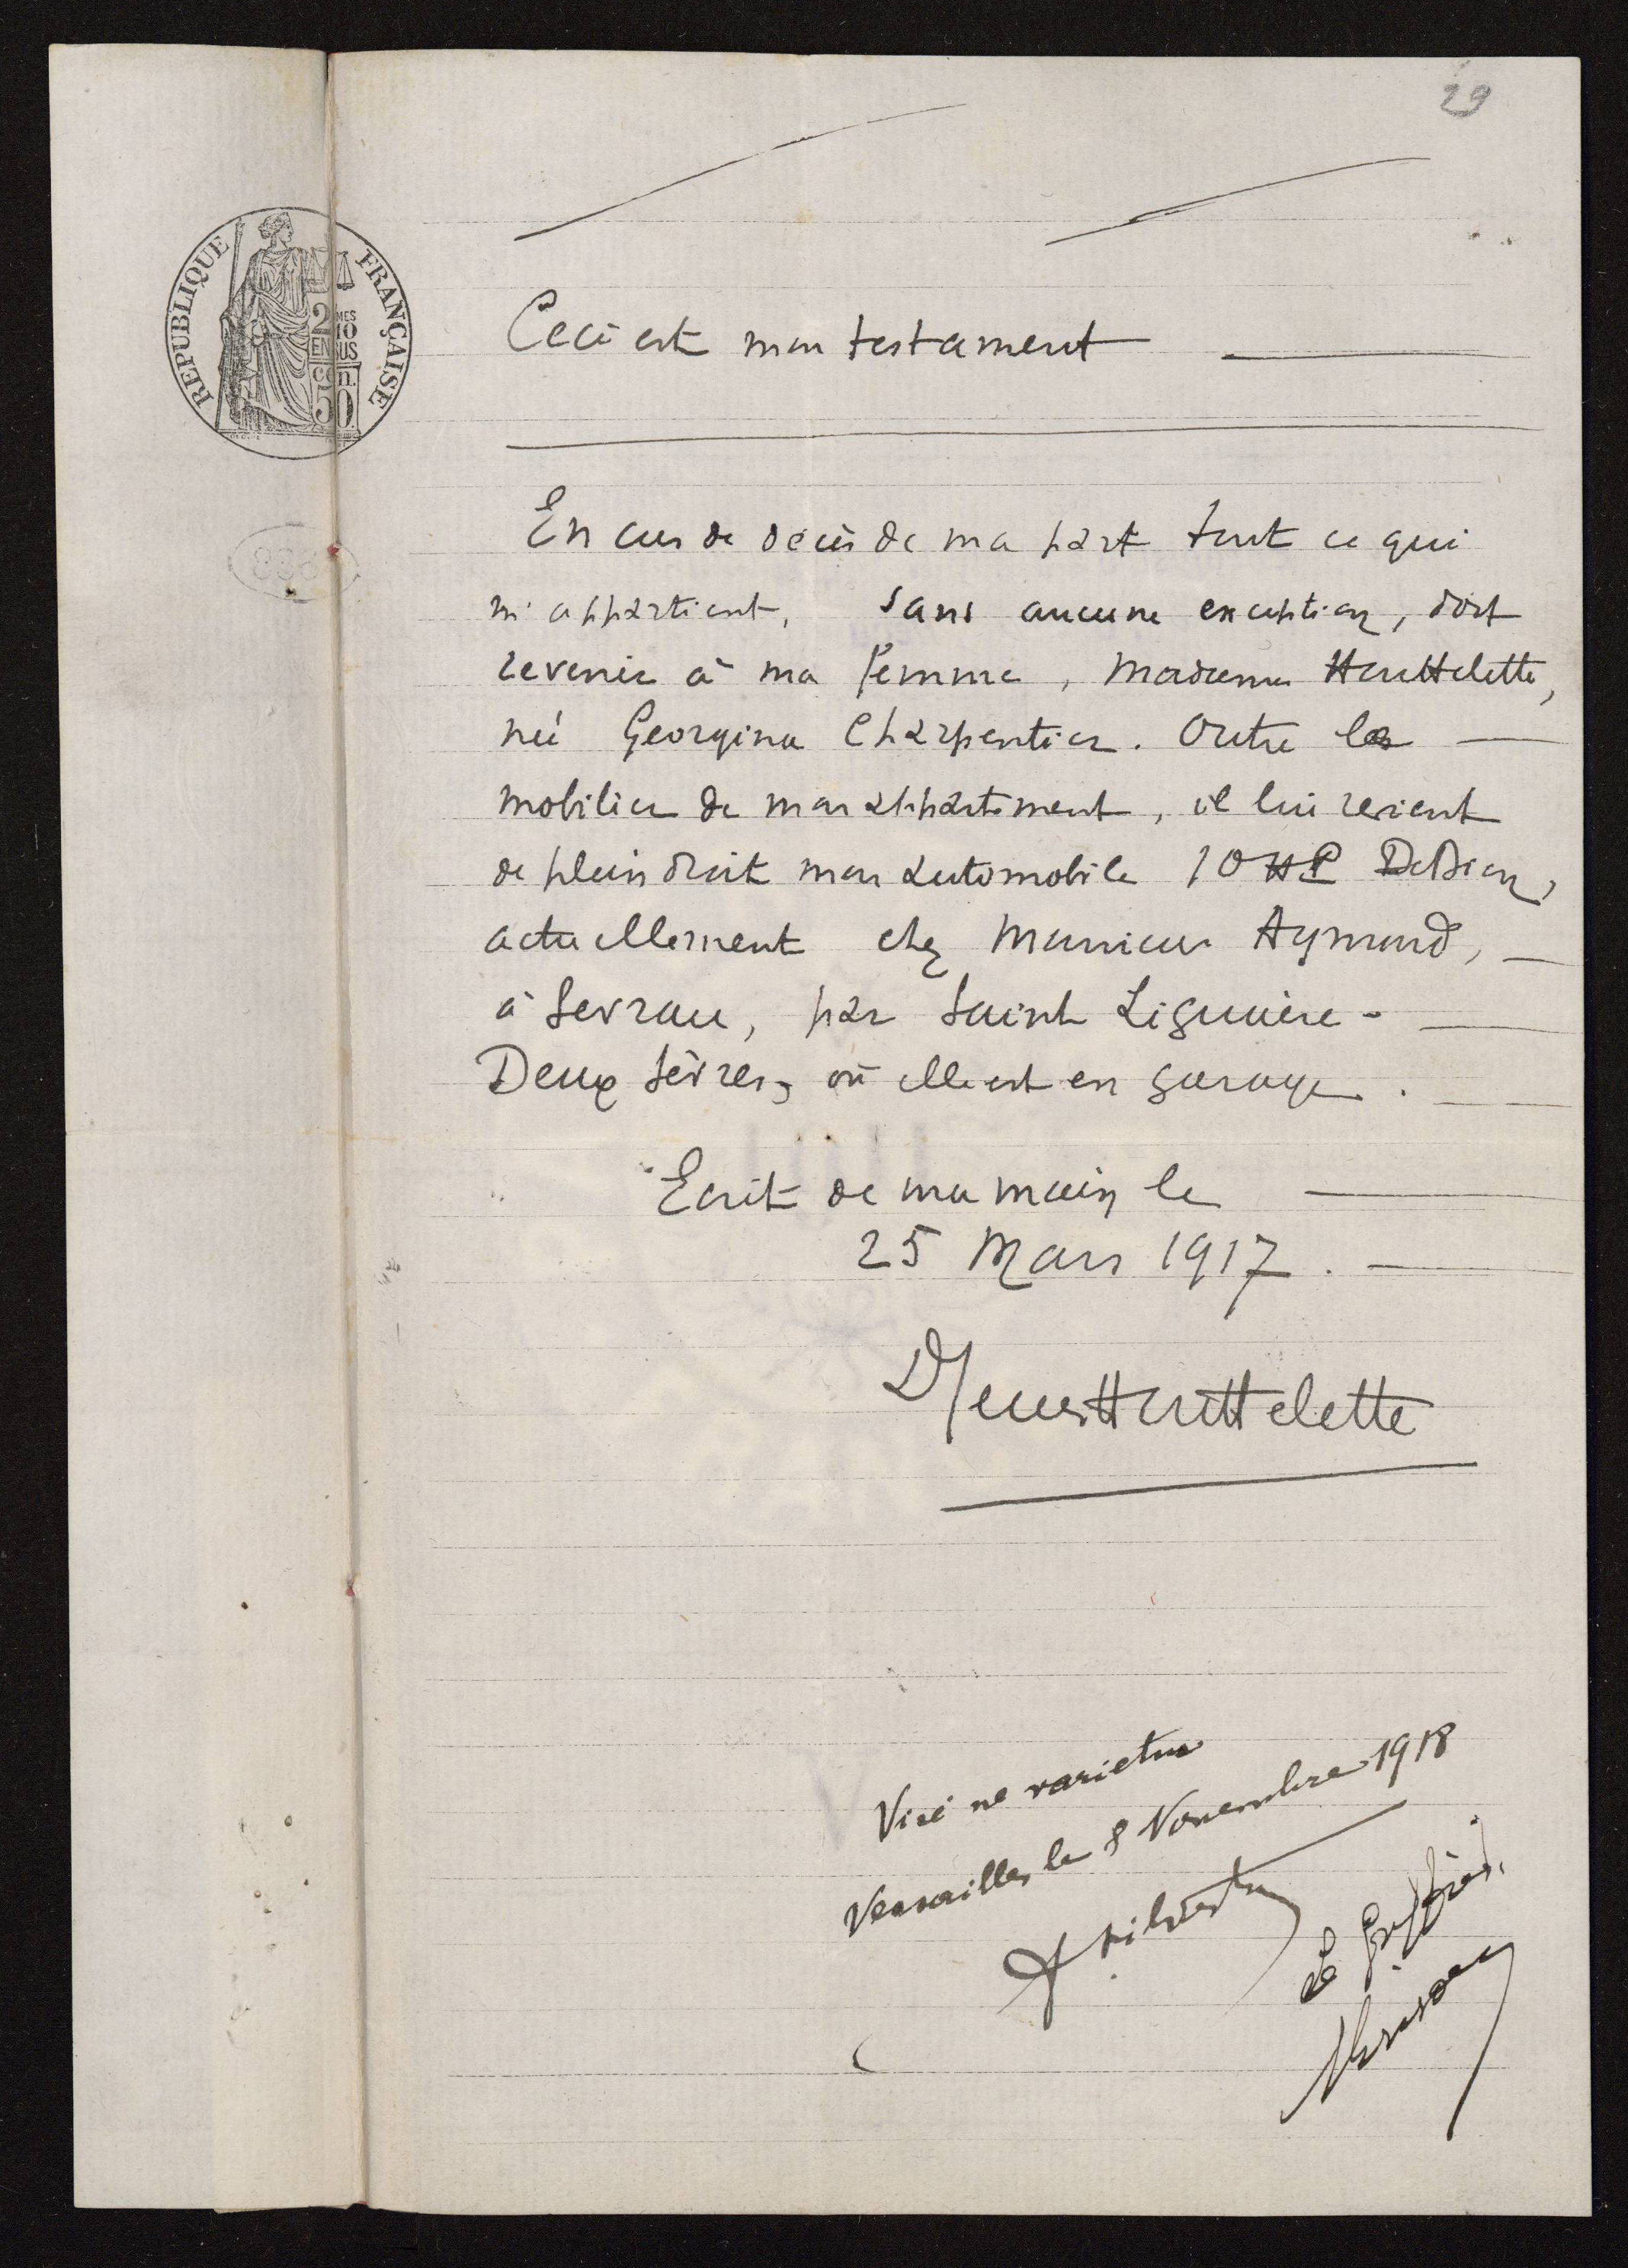 29
REPUBLIQUE FRANÇAISE
2 MES
10
EN SUS
50
Ceci est mon testament
En cas de décès de ma part tout ce qui
m'appartient, sans aucune exception, doit
revenir à ma femme, Madame Heuttelette,
née Georgina Charpentier. Outre le
mobilier de mon appartement, il lui revient
de plein droit mon automobile 10 HP DeDion,
actuellement chez Monsieur Aymard,
à Sevrau, par Saint Liguaire -
Deux Sèvres, où elle est en garage.
Ecrit de ma main le
25 Mars 1917.
Heuttelette
Visé ne varietur
Versailles le 8 Novembre 1918
Le Greffier,